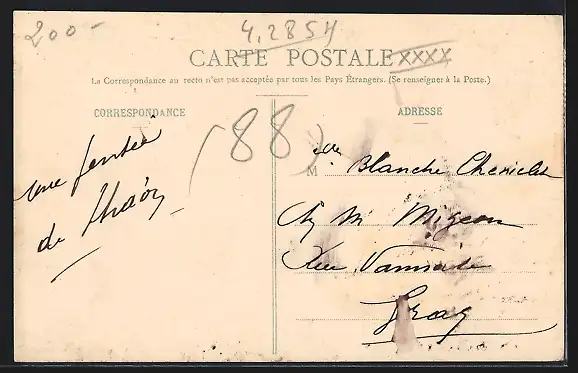 200-
4,2854
CARTE POSTALE xxxx
La Correspondance au recto n'est pas acceptée par tous les Pays Étrangers. (Se renseigner à la Poste.)
CORRESPONDANCE
ADRESSE
(88)
une pensée
de Thaon
Mlle Blanche
Chez Mr Migeon
Rue
Gray